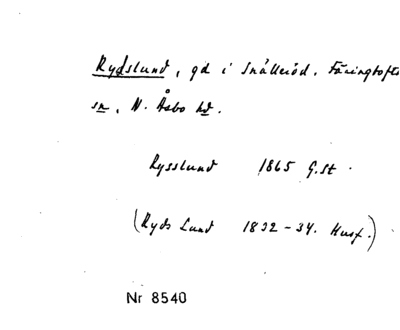 Rydslund, gd i Snälleröd. Färingtofta
sn, N. Åsbo hd.
Rysslund 1865 G.st.
(Ryds Lund 1832-34. Husf.)
Nr 8540